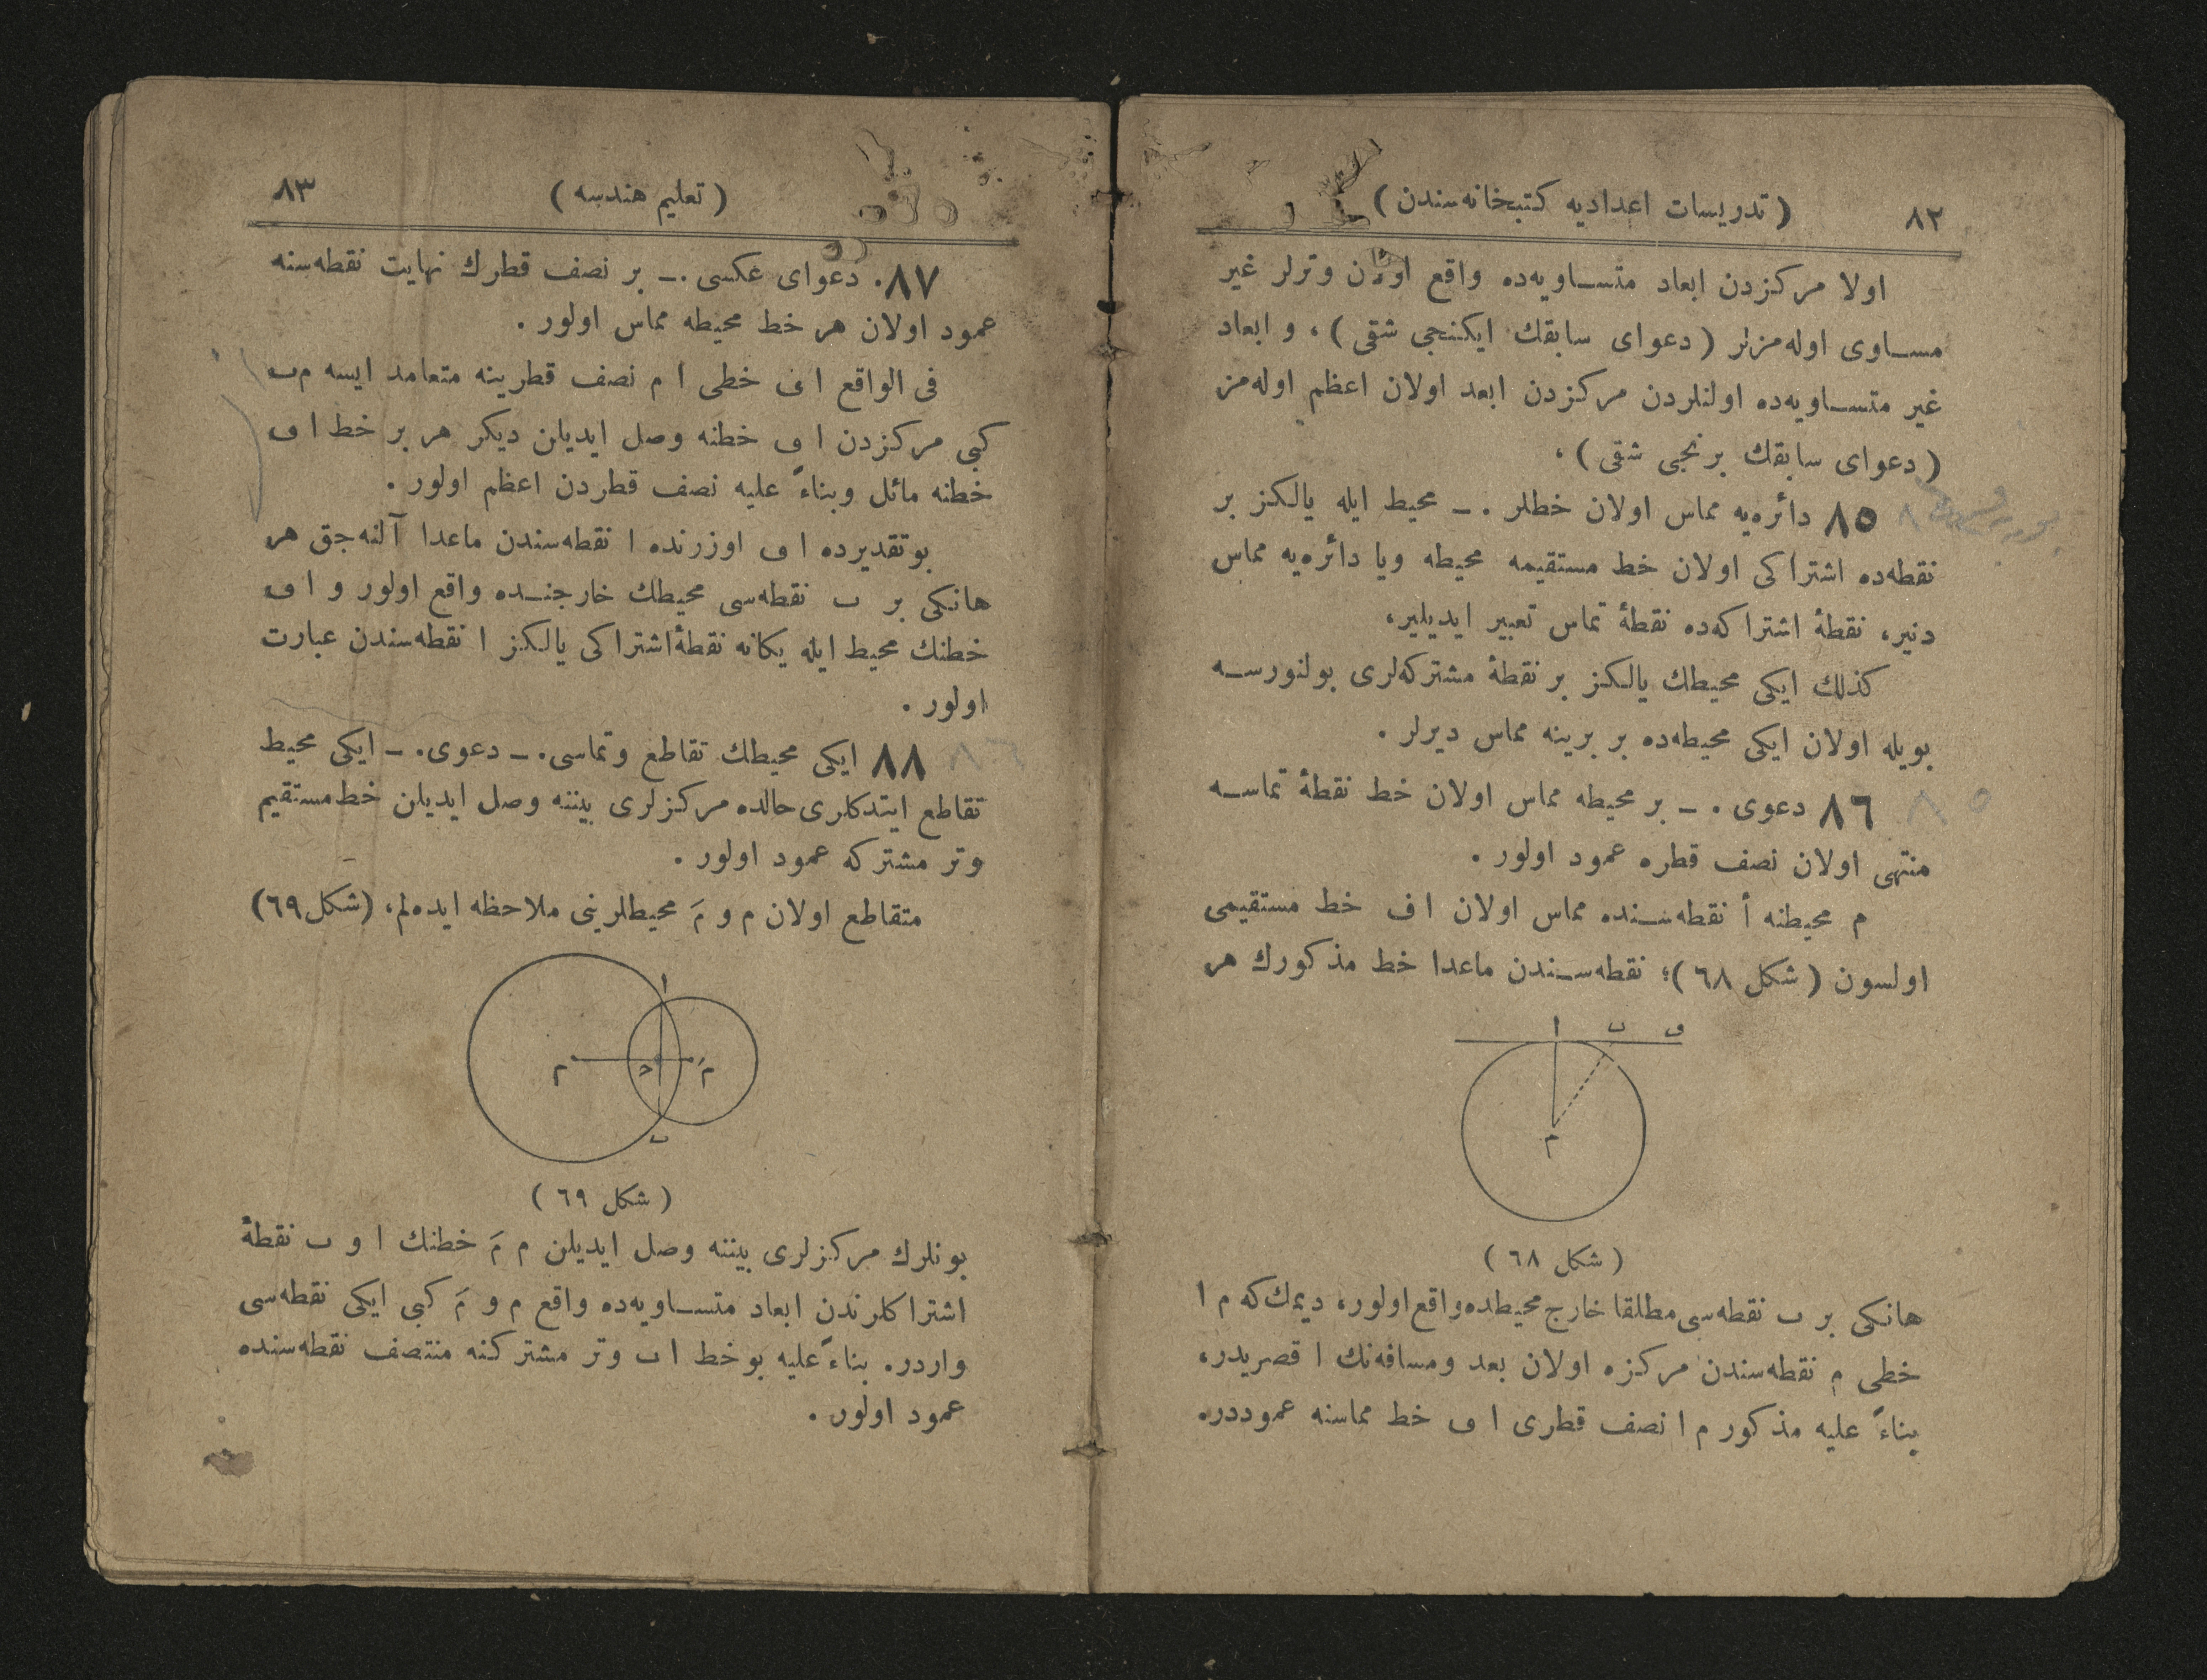 ٨٢ ( تدريسات اعداديه كتبخانه‌سندن )
اولا مركزدن ابعاد متساويه‌ده واقع اولان وترلر غير
مساوى اوله‌مزلر ( دعواى سابقك ايكنجى شقى ) ، و ابعاد
غير متساويه‌ده اولنلردن مركزدن ابعد اولان اعظم اوله‌مز
( دعواى سابقك برنجى شقى ) ،
٨٥ دائره‌يه مماس اولان خطلر . ـ محيط ايله يالكز بر
نقطه‌ده اشتراكى اولان خط مستقيمه محيطه ويا دائره‌يه مماس
دنير، نقطهٔ اشتراكه‌ده نقطهٔ تماس تعبير ايديلير،
كذلك ايكى محيطك يالكز بر نقطهٔ مشتركه‌لرى بولنورسه
بويله اولان ايكى محيطه‌ده بر برينه مماس ديرلر .
٨٦ دعوى . ـ بر محيطه مماس اولان خط نقطهٔ تماسه
منتهى اولان نصف قطره عمود اولور .
م محيطنه أ نقطه‌سنده مماس اولان ا ف خط مستقيمى
اولسون ( شكل ٦٨ )؛ نقطه‌سندن ماعدا خط مذكورك هر
ا ٮ ٯ
م
( شكل ٦٨ )
هانكى بر ٮ نقطه‌سى مطلقا خارج محيطده واقع اولور، ديمك‌كه م ا
خطى م نقطه‌سندن مركزه اولان بعد ومسافه‌نك اقصريدر،
بناءً عليه مذكور م ا نصف قطرى ا ٯ خط مماسنه عموددر.
( تعليم هندسه ) ٨٣
٨٧. دعواى عكسى .ـ بر نصف قطرك نهايت نقطه‌سنه
عمود اولان هر خط محيطه مماس اولور .
فى الواقع ا ٯ خطى ا م نصف قطرينه متعامد ايسه م ٮ
كبى مركزدن ا ٯ خطنه وصل ايديلن ديكر هر بر خط ا ٯ
خطنه مائل وبناءً عليه نصف قطردن اعظم اولور .
بوتقديرده ا ٯ اوزرنده ا نقطه‌سندن ماعدا آلنه‌جق هر
هانكى بر ٮ نقطه‌سى محيطك خارجنده واقع اولور و ا ٯ
خطنك محيط ايله يكانه نقطهٔ اشتراكى يالكز ا نقطه‌سندن عبارت
اولور .
٨٨ ايكى محيطك تقاطع وتماسى. ـ دعوى. ـ ايكى محيط
تقاطع ايتدكلرى حالده مركزلرى بيننه وصل ايديلن خط مستقيم
وتر مشتركه عمود اولور .
متقاطع اولان م و مَ محيطلرينى ملاحظه ايده‌لم، (شكل ٦٩)
ا
م د مَ
ٮ
( شكل ٦٩ )
بونلرك مركزلرى بيننه وصل ايديلن م مَ خطنك ا و ٮ نقطهٔ
اشتراكلرندن ابعاد متساويه‌ده واقع م و مَ كبى ايكى نقطه‌سى
واردر. بناءً عليه بو خط ا ٮ وتر مشتركنه منتصف نقطه‌سنده
عمود اولور .